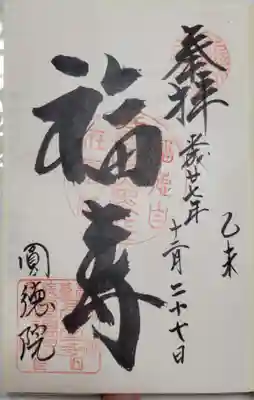 奉拝
乙未
平成廿七年
十二月二十七日
福寿
圓徳院